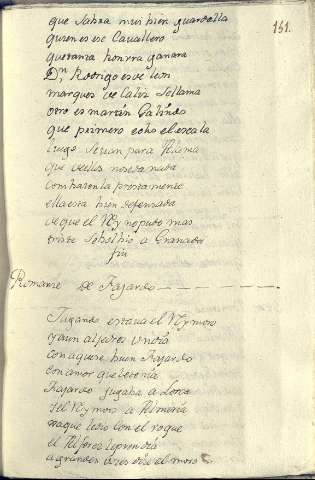 151.
que sabra mui bien guardalla
quien es ese Cavallero
que tanta honrra ganara
Dn Rodrigo es de leon
marques de Caliz se llama
otro es martin Galindo
que primero echo el escala
luego se van para Alama
que dellos no se da nada
combatenla prestamente
ella esta bien defensada
de que el Rey no pudo mas
triste se bolbio a Granada
fin
Romanse de Fajardo
Jugando estava el Rey moro
y aun aljedres un dia
con aquese buen Fajardo
con amor que le tenia
Fajardo jugaba a Lorca
y el Rey moro a Almeria
xaque le dio con el roque
el Alferes le prendia
a grandes voses dise el moro